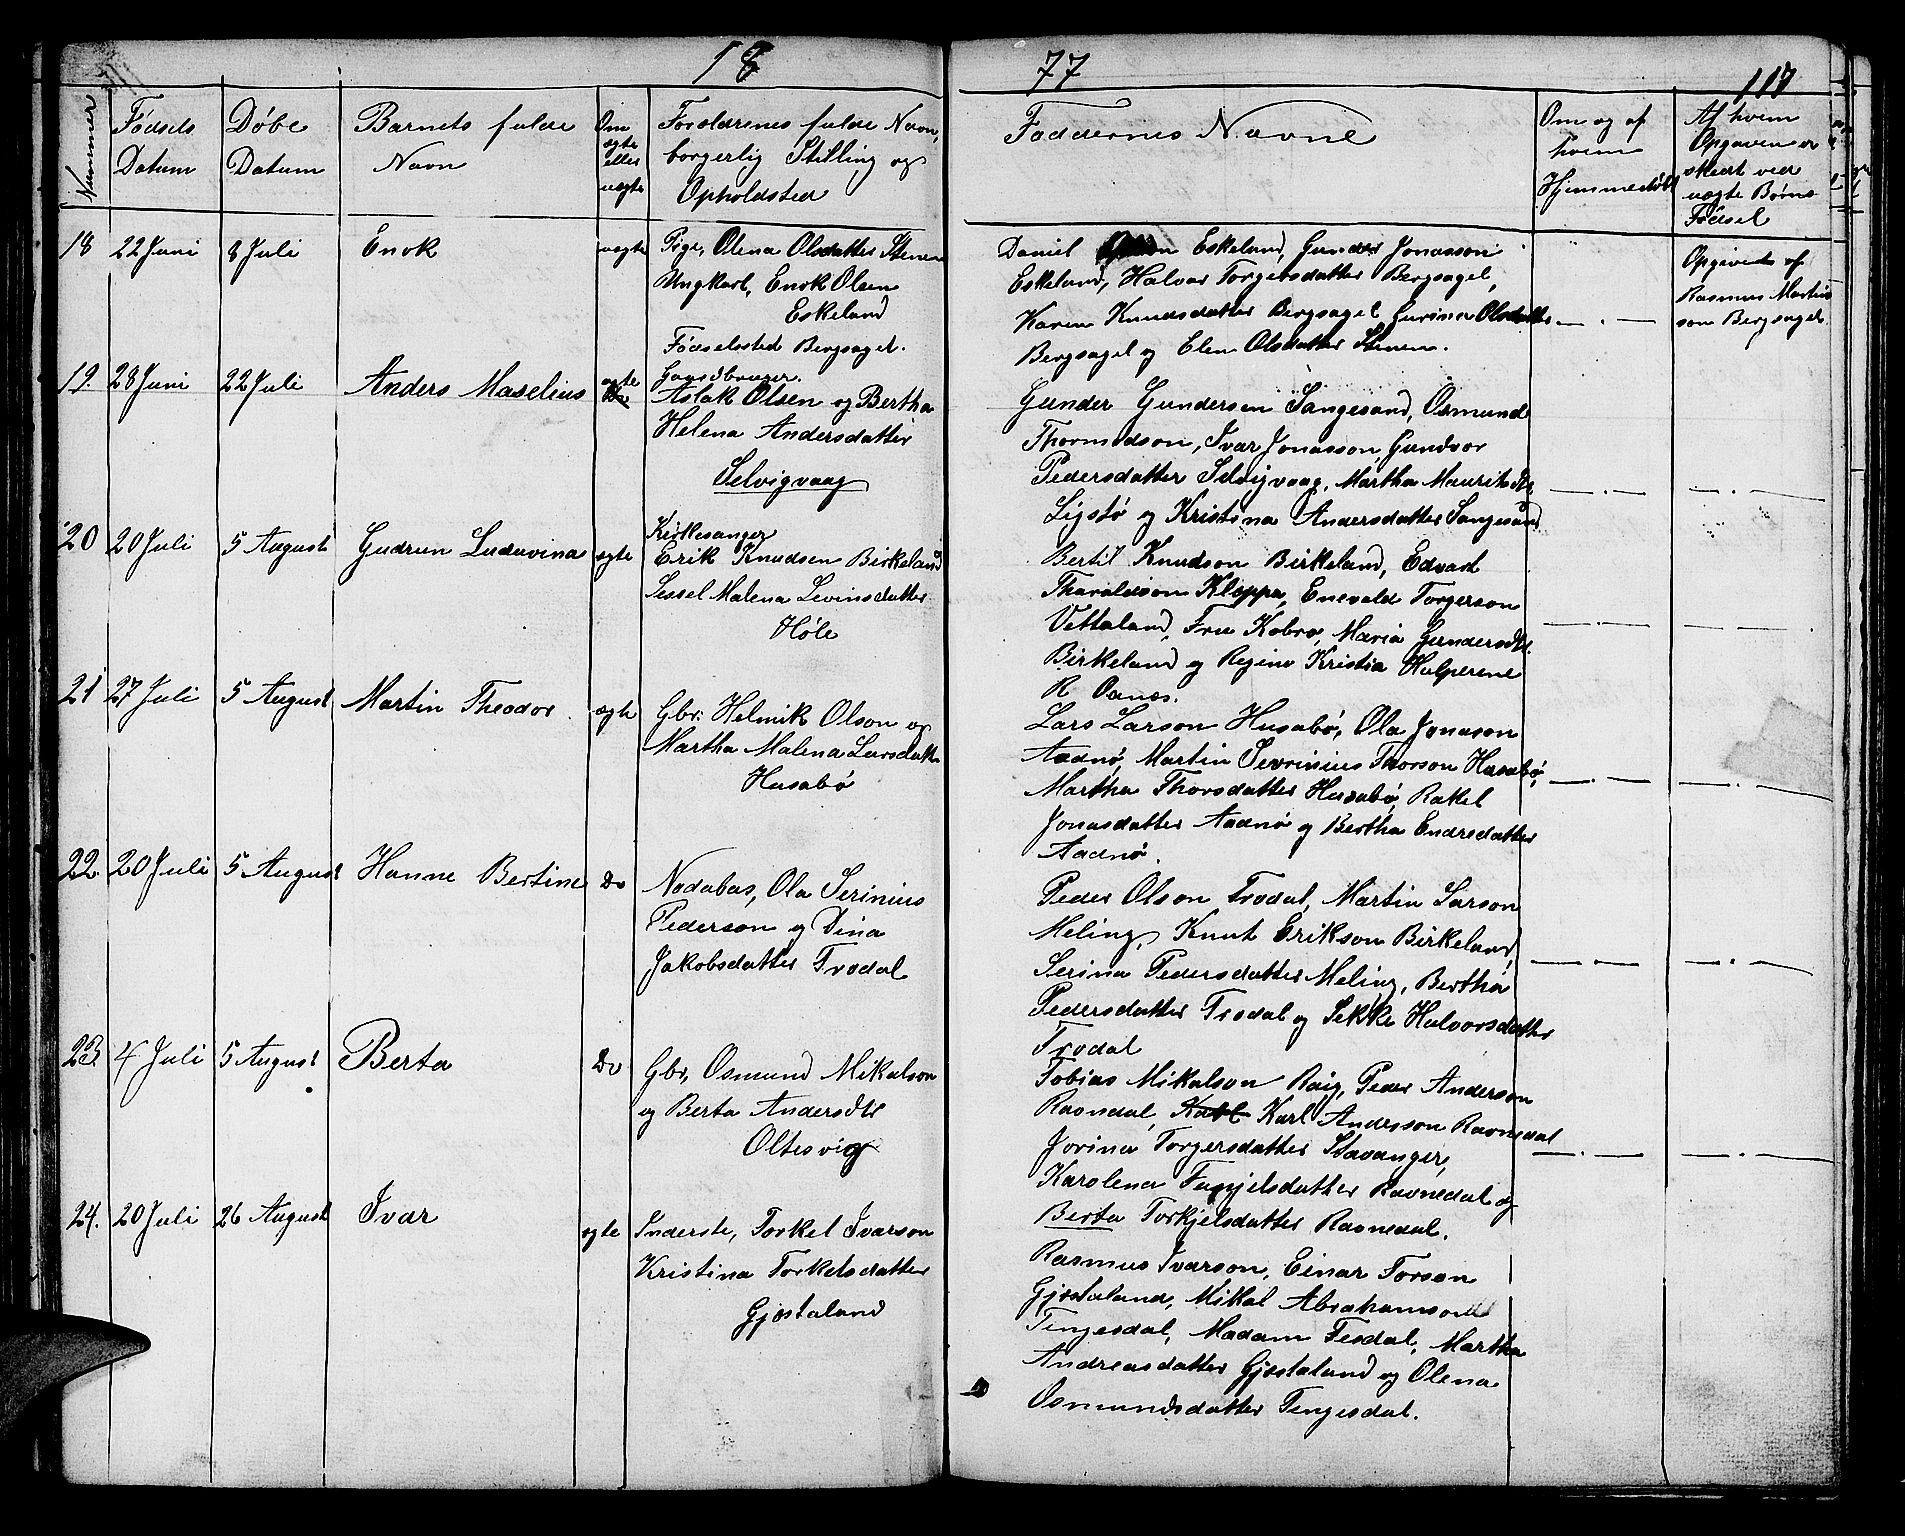 18
77
117
Nummer
Fødsels
Datum
Døbe
Datum
Barnets fulde
Navn
Om
ægte
eller
uægte
Foroldrenes fulde Navn,
borgerlig Stilling og
Opholdsted
Faddernes Navne
Om og af
hvem
Hjemmedøbt
Af hvem
Opgaven er
skedt ved
uægte Børns
Fødsel
18 22 Juni 8 Juli Enok uægte
Pige, Olena Olsdatter Stenen
Ungkarl, Enok Olsen
Eskeland
Fødselssted Bergsagel.
Daniel Eskeland, Gunder Jonasson
Eskeland, Halvar Torgersdatter Bergsagel,
Karen Knudsdatter Bergsagel Gurina Olsdatter
Bergsagel og Elen Olsdatter Stenen.
— . —
Opgivet af
Rasmus Martin
son Bergsagel
19. 28 Juni 22 Juli Anders Maselius ægte
Gaardbruger.
Aslak Olsen og Bertha
Helena Andersdatter
Selvigvaag
Gunder Gundersen Sangesand, Osmund
Thormodson, Ivar Jonasson, Gundvor
Pedersdatter Selvigvaag, Martha Mauritsdtr
Ligstø og Kristina Andersdatter Sangesand
— . — — . —
20 20 Juli 5 August Gudrun Luduvina ægte
Kirkesanger
Erik Knudsen Birkeland
Sessel Malena Levinsdatter
Høle
Bertil Knudson Birkeland, Edvard
Tharaldson Kleppa, Enevald Torgerson
Vettaland, Fru Kobro, Maria Gundersdtr.
Birkeland og Regine Kristia Halperene
R Oanes.
— . — — . —
21 27 Juli 5 August Martin Theodor ægte
Gbr. Helmik Olson og
Martha Malena Larsdatter
Husabø
Lars Larson Husabø, Ola Jonason
Aadnø, Martin Sevrinius Thorson Husabø,
Martha Thorsdatter Husabø, Rakel
Jonasdatter Aadnø og Bertha Endresdatter
Aadnø.
— . — — . —
22. 20 Juli 5 August Hanne Bertine Do
Nodabas, Ola Serinius
Pederson og Dina
Jakobsdatter Trodal
Peder Olson Trodal, Martin Larson
Meling, Knut Erikson Birkeland,
Serina Pedersdatter Meling, Bertha
Pedersdatter Trodal og Sekke Halvorsdatter
Trodal
— . — — . —
23. 4 Juli 5 August Berta Do
Gbr, Osmund Mikalson
og Berta Andersdtr
Oltesvig
Tobias Mikalson Raig, Peder Anderson
Ravndal, Karl Karl Andersson Ravnedal
Jorina Torgersdatter Stavanger,
Karolena Tarjelsdatter Ravnedal og
Berta Torkjelsdatter Ravnedal.
— . — — . —
24. 20 Juli 26 August Ivar ægte
Inderste, Torkel Ivarson
Kristina Torkelsdatter
Gjøstaland
Rasmus Ivarson, Einar Torson
Gjøstaland, Mikal Abrahamson
Tengesdal, Madam Tesdal, Martha
Andreasdatter Gjøstaland og Olena
Osmundsdatter Tengesdal.